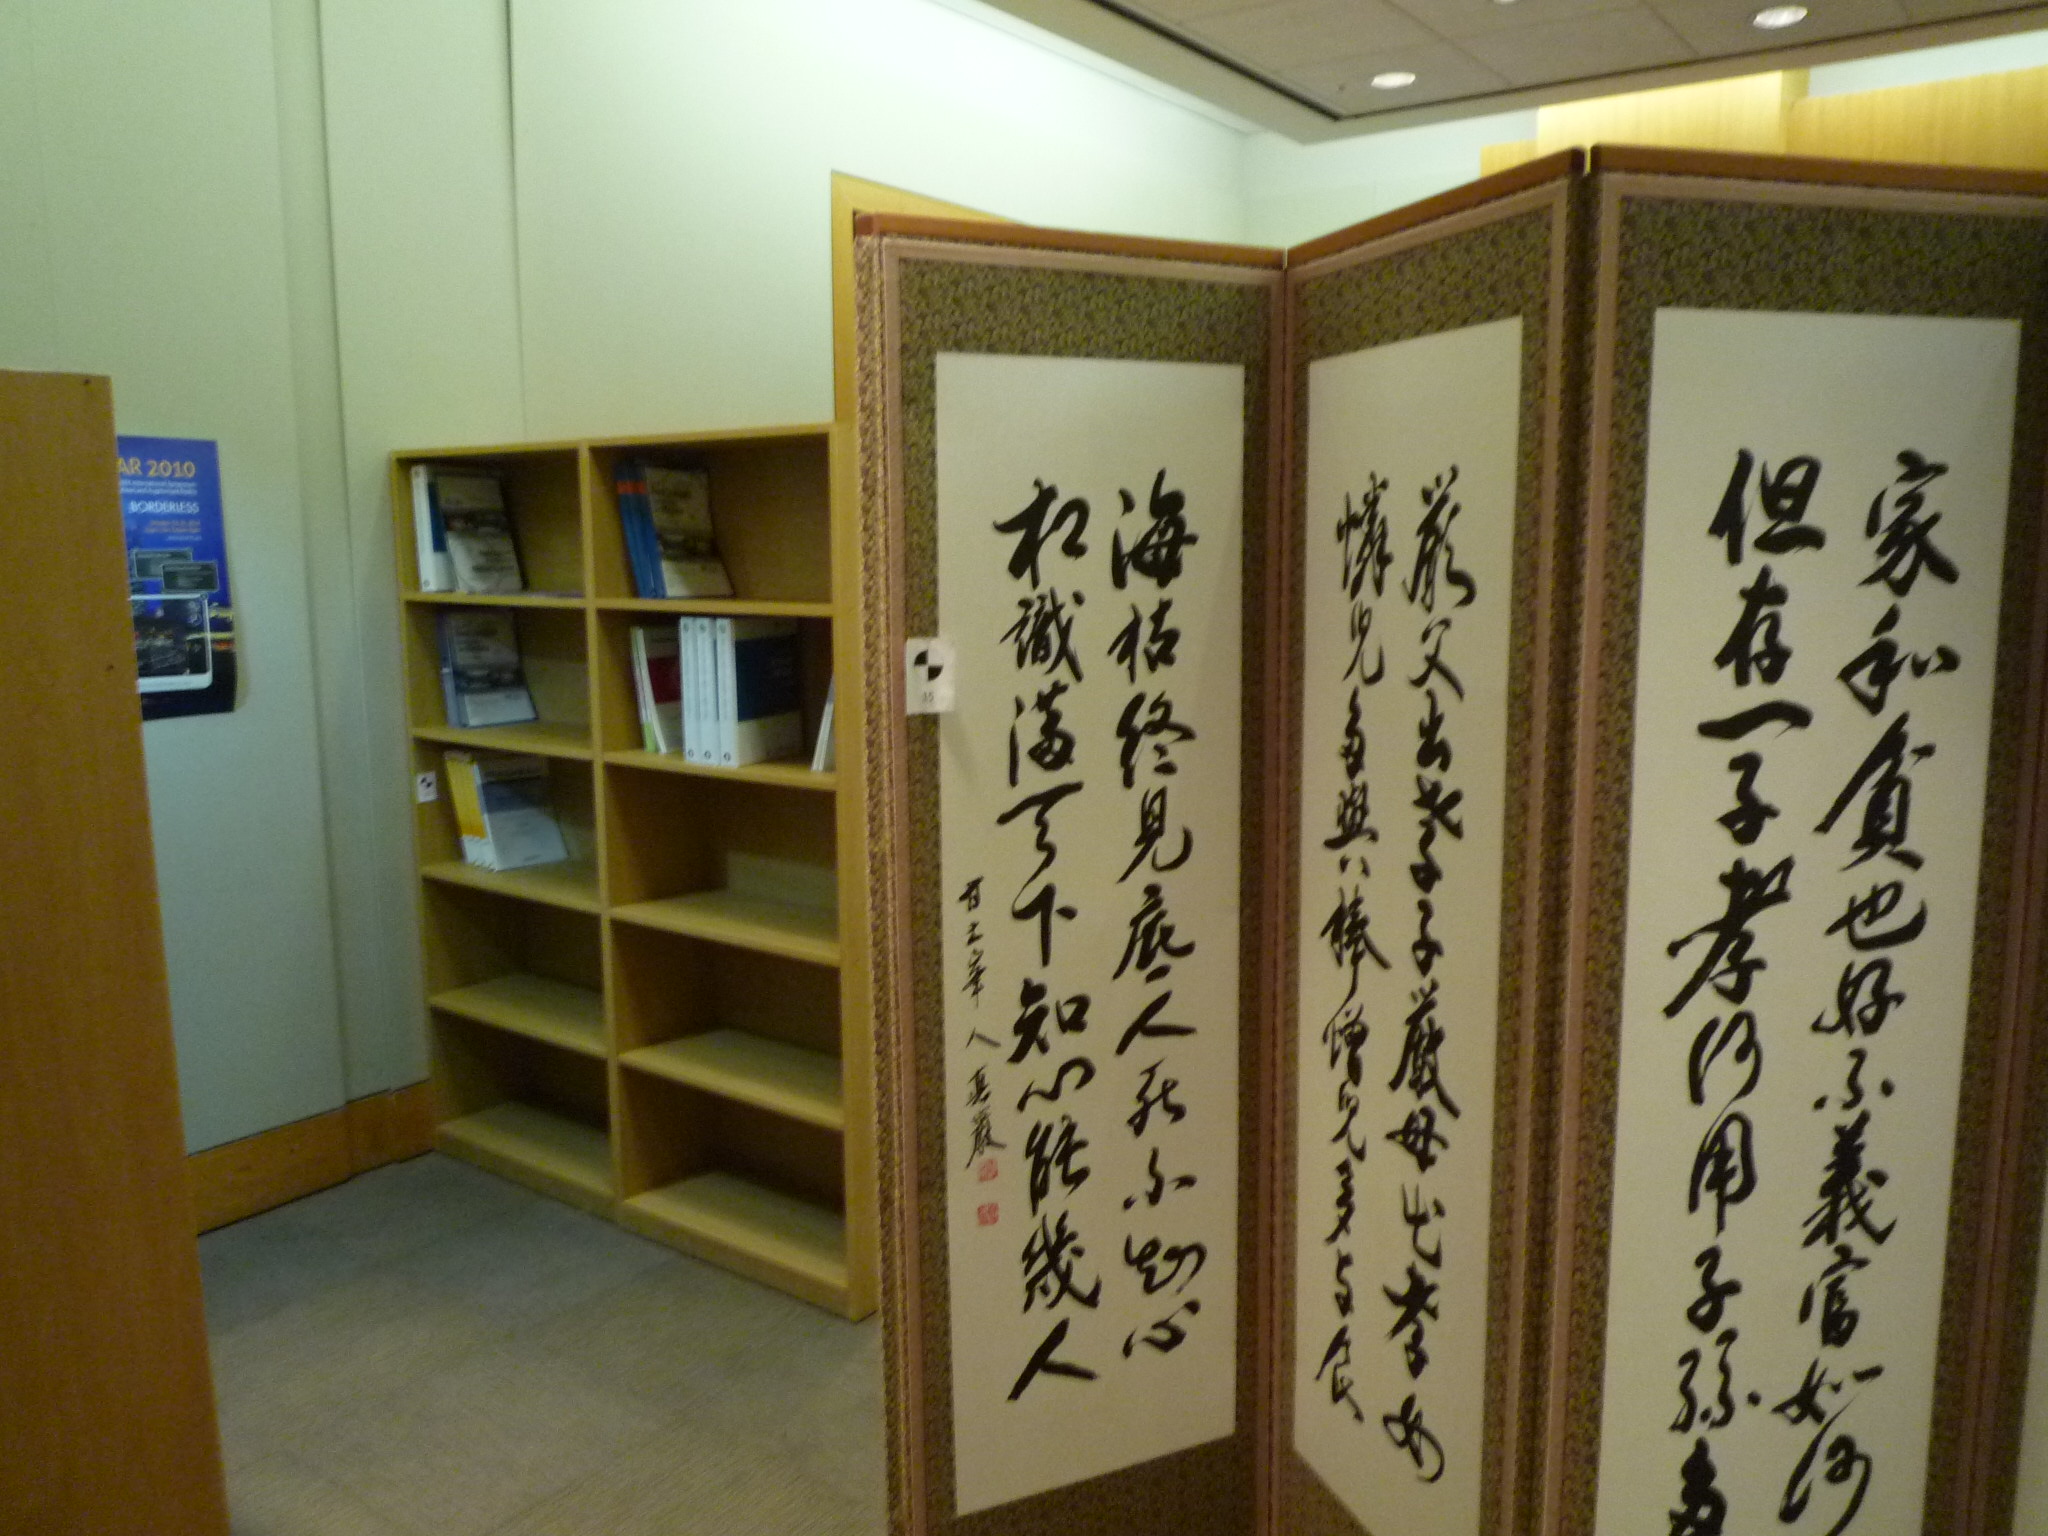 AR 2010
BORDERLESS
家和貧也好不義富如何
但存一子孝何用子孫多
嚴父出孝子嚴母出孝女
憐兒多與棒憎兒多與食
海枯終見底人死不知心
相識滿天下知心能幾人